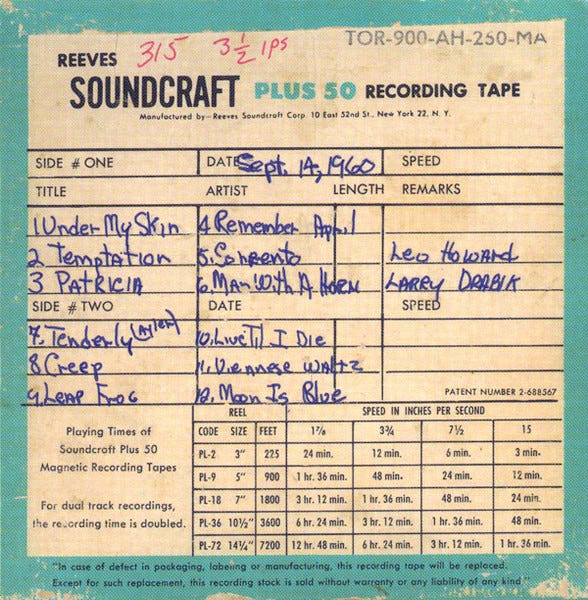 315 3 1/2 ips TOR-900-AH-250-MA
REEVES
SOUNDCRAFT PLUS 50 RECORDING TAPE
Manufactured by—Reeves Soundcraft Corp. 10 East 52nd St., New York 22, N. Y.
SIDE # ONE DATE Sept. 14, 1960 SPEED
TITLE ARTIST LENGTH REMARKS
1 Under My Skin 4 Remember April
2 Temptation 5. Sorrento Leo Howard
3 PATRICIA 6. Man With A Horn LARRY DRABIK
SIDE # TWO DATE SPEED
7. Tenderly 10. Live Til I Die
8 Creep 11. Viennese Waltz
9. Leap Frog 12. Moon Is Blue
PATENT NUMBER 2-688567
Playing Times of
Soundcraft Plus 50
Magnetic Recording Tapes
For dual track recordings,
the recording time is doubled.
REEL SPEED IN INCHES PER SECOND
CODE SIZE FEET 1⅞ 3¾ 7½ 15
PL-2 3" 225 24 min. 12 min. 6 min. 3 min.
PL-9 5" 900 1 hr. 36 min. 48 min. 24 min. 12 min.
PL-18 7" 1800 3 hr. 12 min. 1 hr. 36 min. 48 min. 24 min.
PL-36 10½" 3600 6 hr. 24 min. 3 hr. 12 min. 1 hr. 36 min. 48 min.
PL-72 14¼" 7200 12 hr. 48 min. 6 hr. 24 min. 3 hr. 12 min. 1 hr. 36 min.
"In case of defect in packaging, labeling or manufacturing, this recording tape will be replaced.
Except for such replacement, this recording stock is sold without warranty or any liability of any kind"